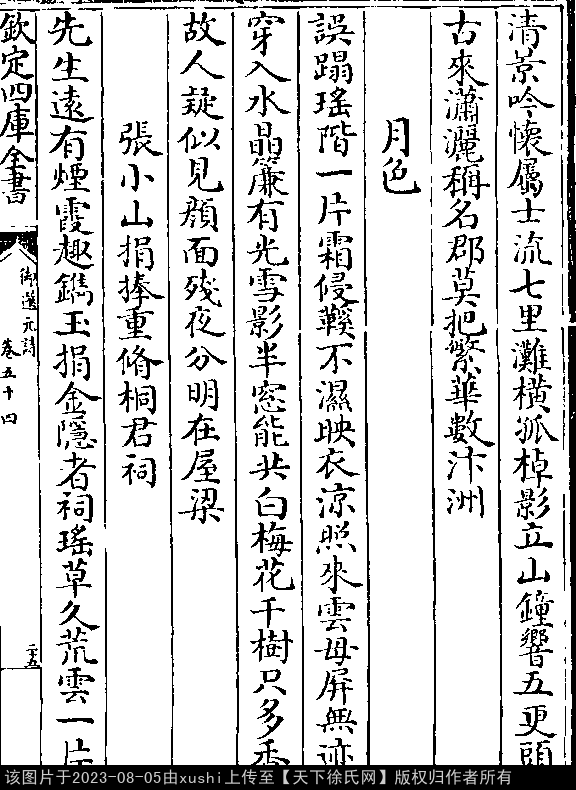 清景吟懷屬士流七里灘橫孤棹影立山鐘響五更頭
古來瀟灑稱名郡莫把繁華數汴洲
月色
誤蹋瑤階一片霜侵鞵不濕映衣涼照來雲母屏無迹
穿入水晶簾有光雪影半窓能共白梅花千樹只多香
故人疑似見顔面殘夜分明在屋梁
張小山捐捧重脩桐君祠
先生遠有煙霞趣鐫玉捐金隱者祠瑤草久荒雲一片
欽定四庫全書
御選元詩
卷五十四
二十五
该图片于2023-08-05由xushi上传至【天下徐氏网】版权归作者所有